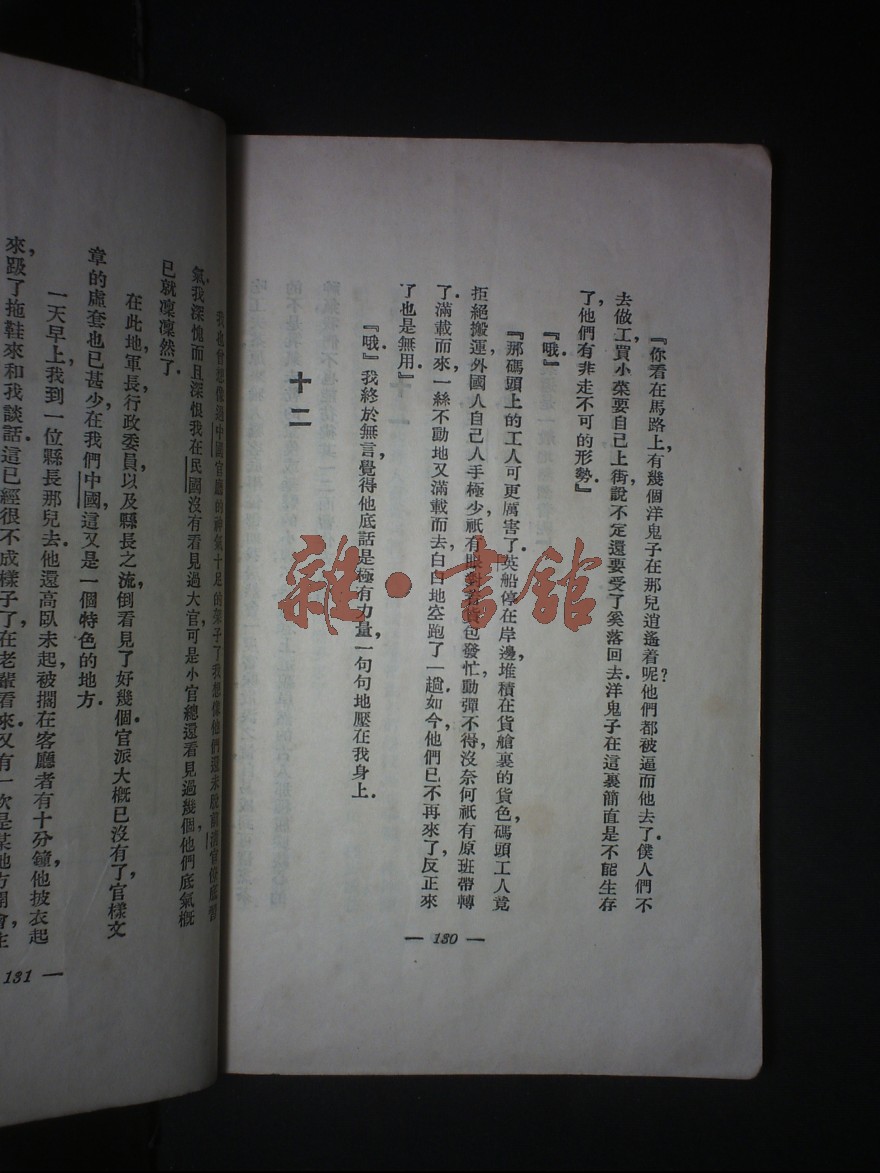 『你看在馬路上，有幾個洋鬼子在那兒逍遙着呢？他們都被逼而他去了，僕人們不
去做工，買小菜要自己上街，說不定還要受了奚落回去。洋鬼子在這裏簡直是不能生存
了，他們有非走不可的形勢。』
『哦。』
『那碼頭上的工人可更厲害了，英船停在岸邊，堆積在貨艙裏的貨色，碼頭工人竟
拒絕搬運，外國人自己人手極少，祇有眼對着貨包發忙，動彈不得，沒奈何祇有原班帶轉
了。滿載而來，一絲不動地又滿載而去，白白地空跑了一趟。如今他們已不再來了，反正來
了也是無用。』
『哦，』我終於無言，覺得他底話是極有力量，一句句地壓在我身上。
十二
— 130 —
我也曾想像過中國官廳的神氣十足的架子了，我想像他們還未脫前清官僚底習
氣。我深愧而且深恨我在民國沒有看見過大官，可是小官總還看見過幾個，他們底氣概
已就凜凜然了。
在此地軍長，行政委員，以及縣長之流，倒看見了好幾個，官派大概已沒有了，官樣文
章的虛套也已甚少，在我們中國，這又是一個特色的地方。
一天早上，我到一位縣長那兒去，他還高臥未起，被擱在客廳者有十分鐘，他披衣起
來，趿了拖鞋來和我談話。這已經很不成樣子了，在老輩看來。又有一次是某地方開會，主
131 —
雜·書館